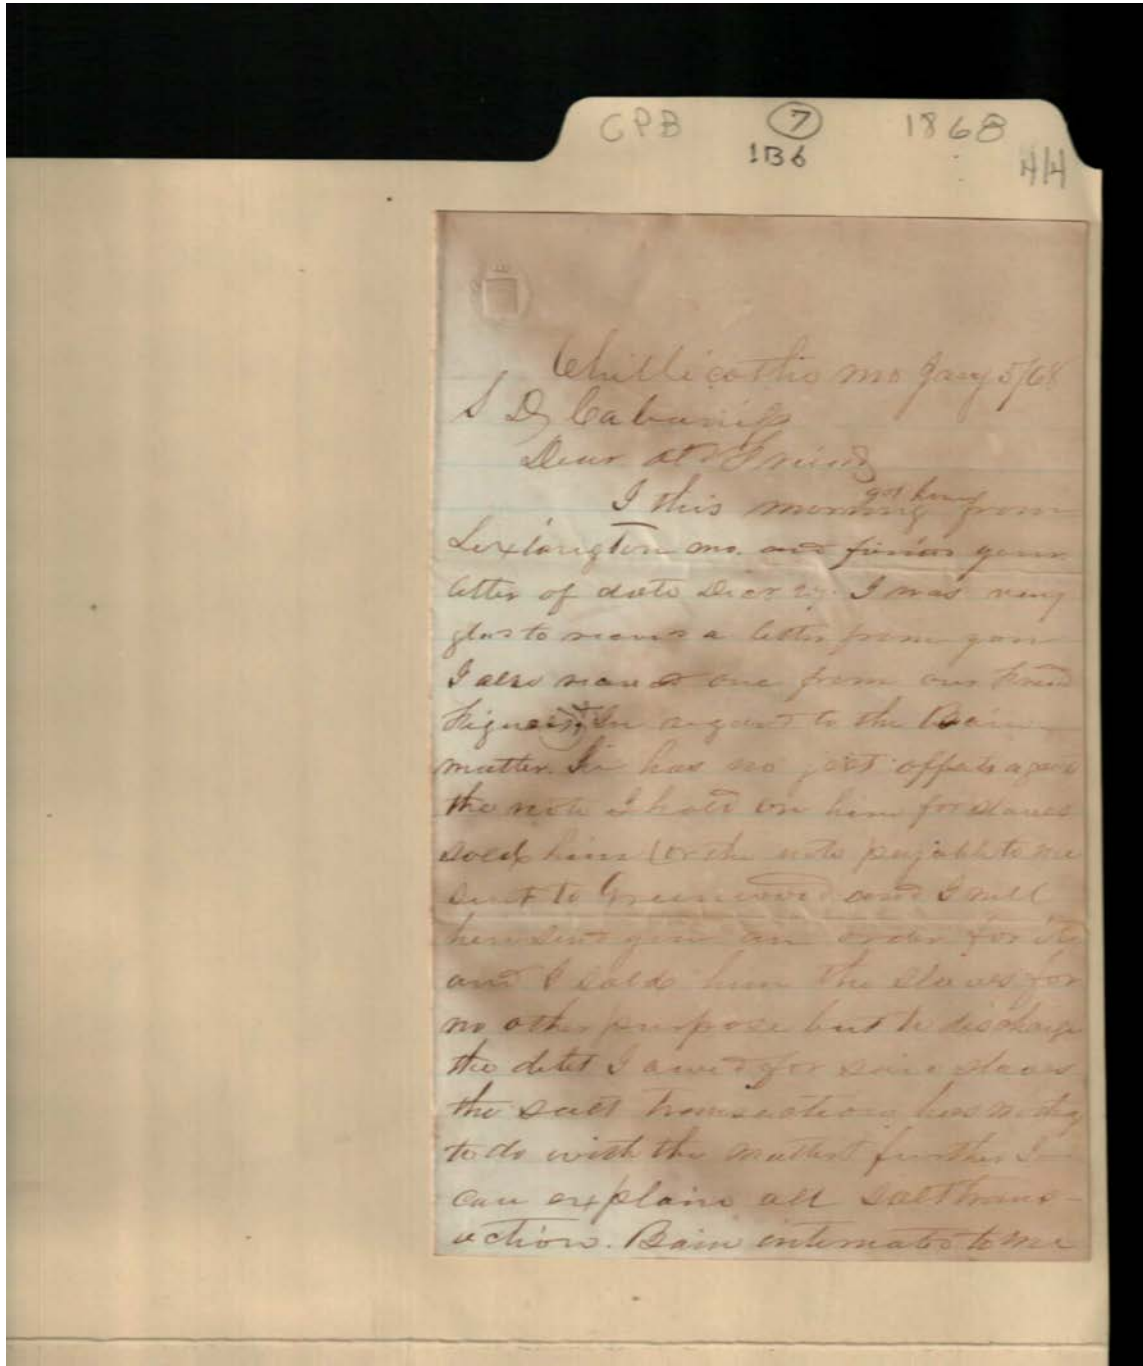 CPB 7 1868
1B6
H/H
Chillicothe Mo Jany 5/68
S D Cabaniss
Dear old Friend
I this morning got home from
Lexington Mo. and finds your
letter of date Decr I was very
glad to receive a letter from you
I also received one from our friend
Figures In regard to the Bain
matter. he has no just offsets against
the note I hold on him for slaves
sold him (or the note payable to me
sent to Greenwood and I will
here send you an order for it)
and I sold him the slaves for
no other purpose but to discharge
the debt I owed for said slaves
the salt transaction has nothing
to do with the matter further I
can explain all salt trans-
action. Bain intimated to me